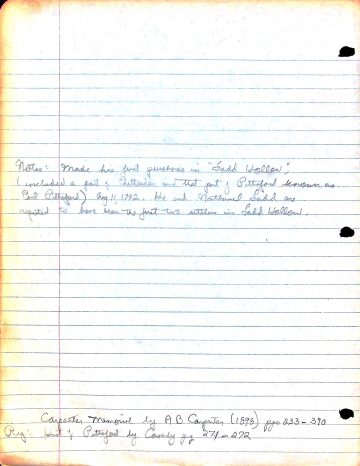 Notes: Made his first purchase in "Ladd Hollow",
(included a part of and that part of Pittsford known as
Pittsford) Aug 11, 1792. He and Nathaniel Ladd are
reputed to have been the first two settlers in Ladd Hollow.
Carpenter Memorial by A B Carpenter (1898) pgs 233-390
Hist of Pittsford by Caverly pg 271-272